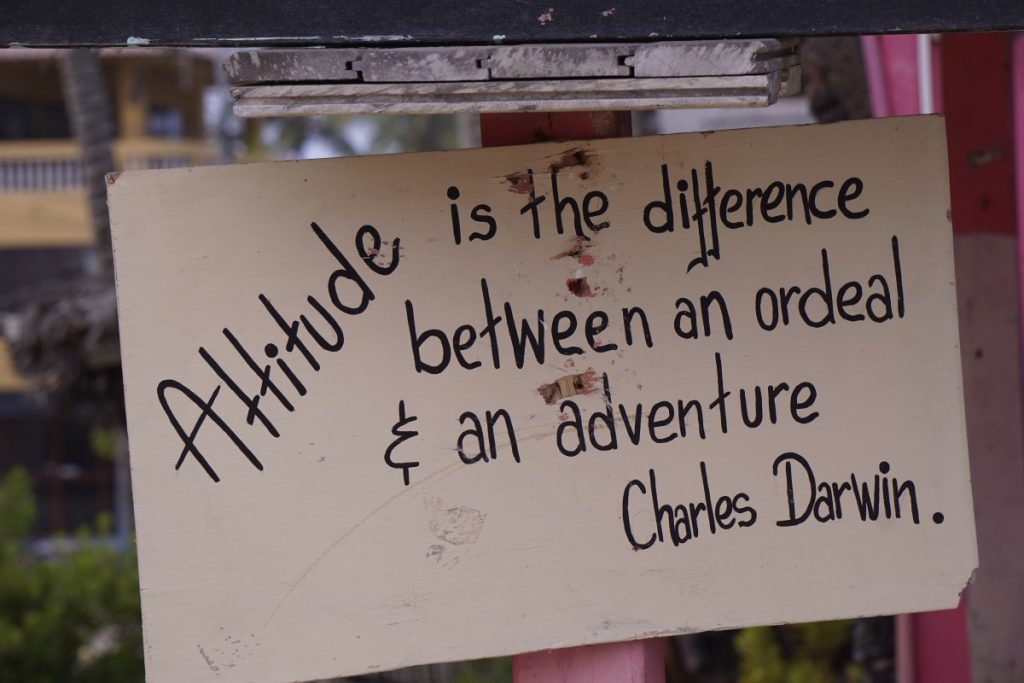 Attitude is the difference
between an ordeal
& an adventure
Charles Darwin.